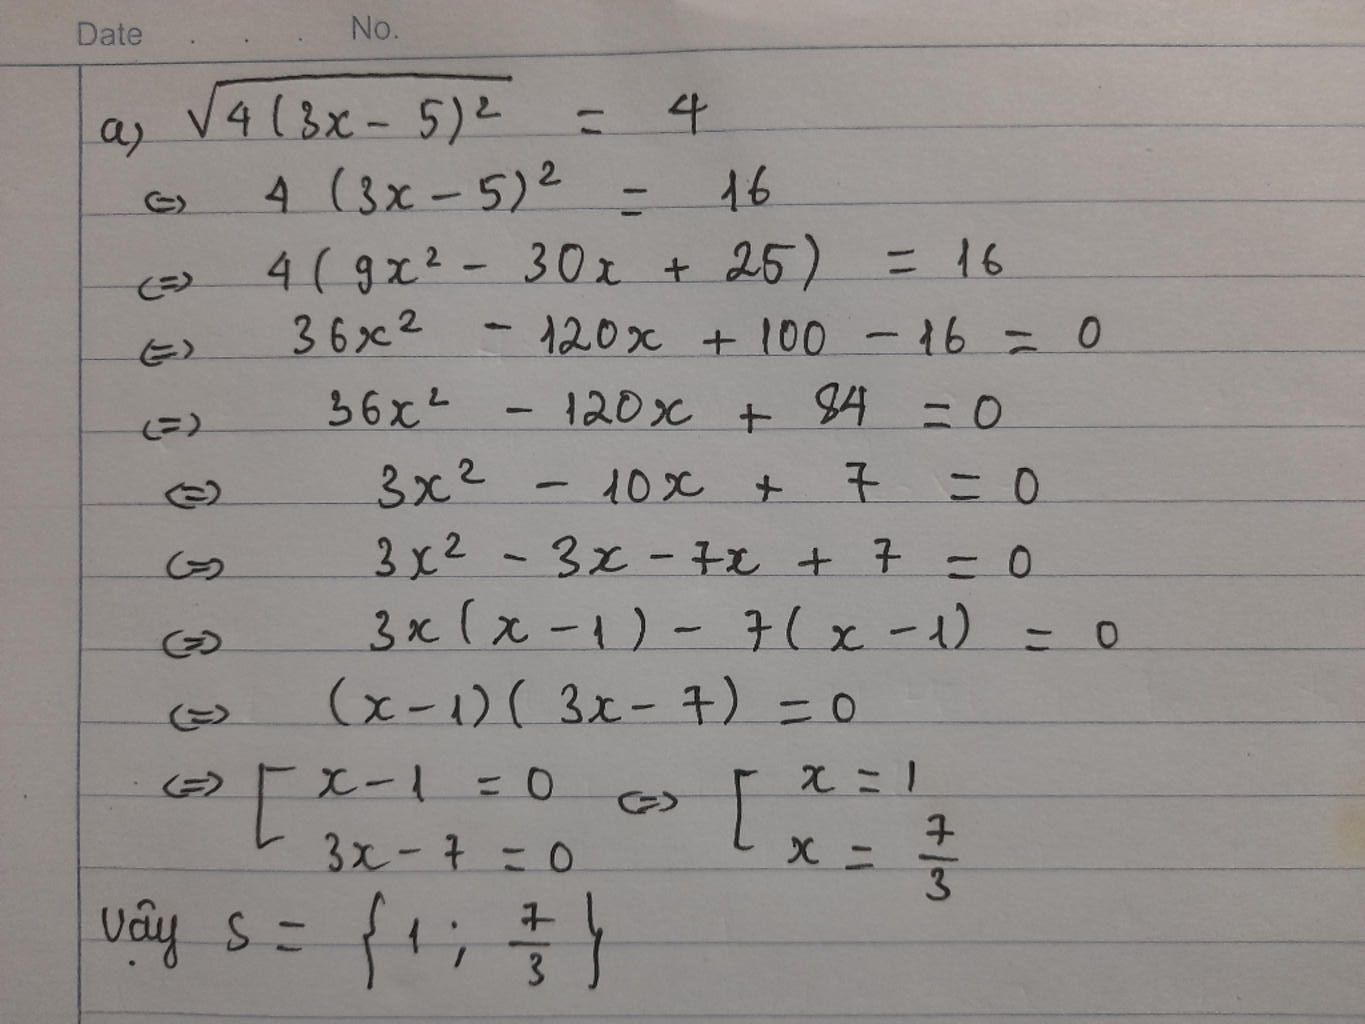 Date . . . No.
a) √4(3x - 5)² = 4
<=> 4 (3x - 5)² = 16
<=> 4(9x² - 30x + 25) = 16
<=> 36x² - 120x + 100 - 16 = 0
<=> 36x² - 120x + 84 = 0
<=> 3x² - 10x + 7 = 0
<=> 3x² - 3x - 7x + 7 = 0
<=> 3x(x - 1) - 7(x - 1) = 0
<=> (x - 1)(3x - 7) = 0
<=> [ x - 1 = 0 <=> [ x = 1
3x - 7 = 0 x = 7/3
Vậy S = {1; 7/3}